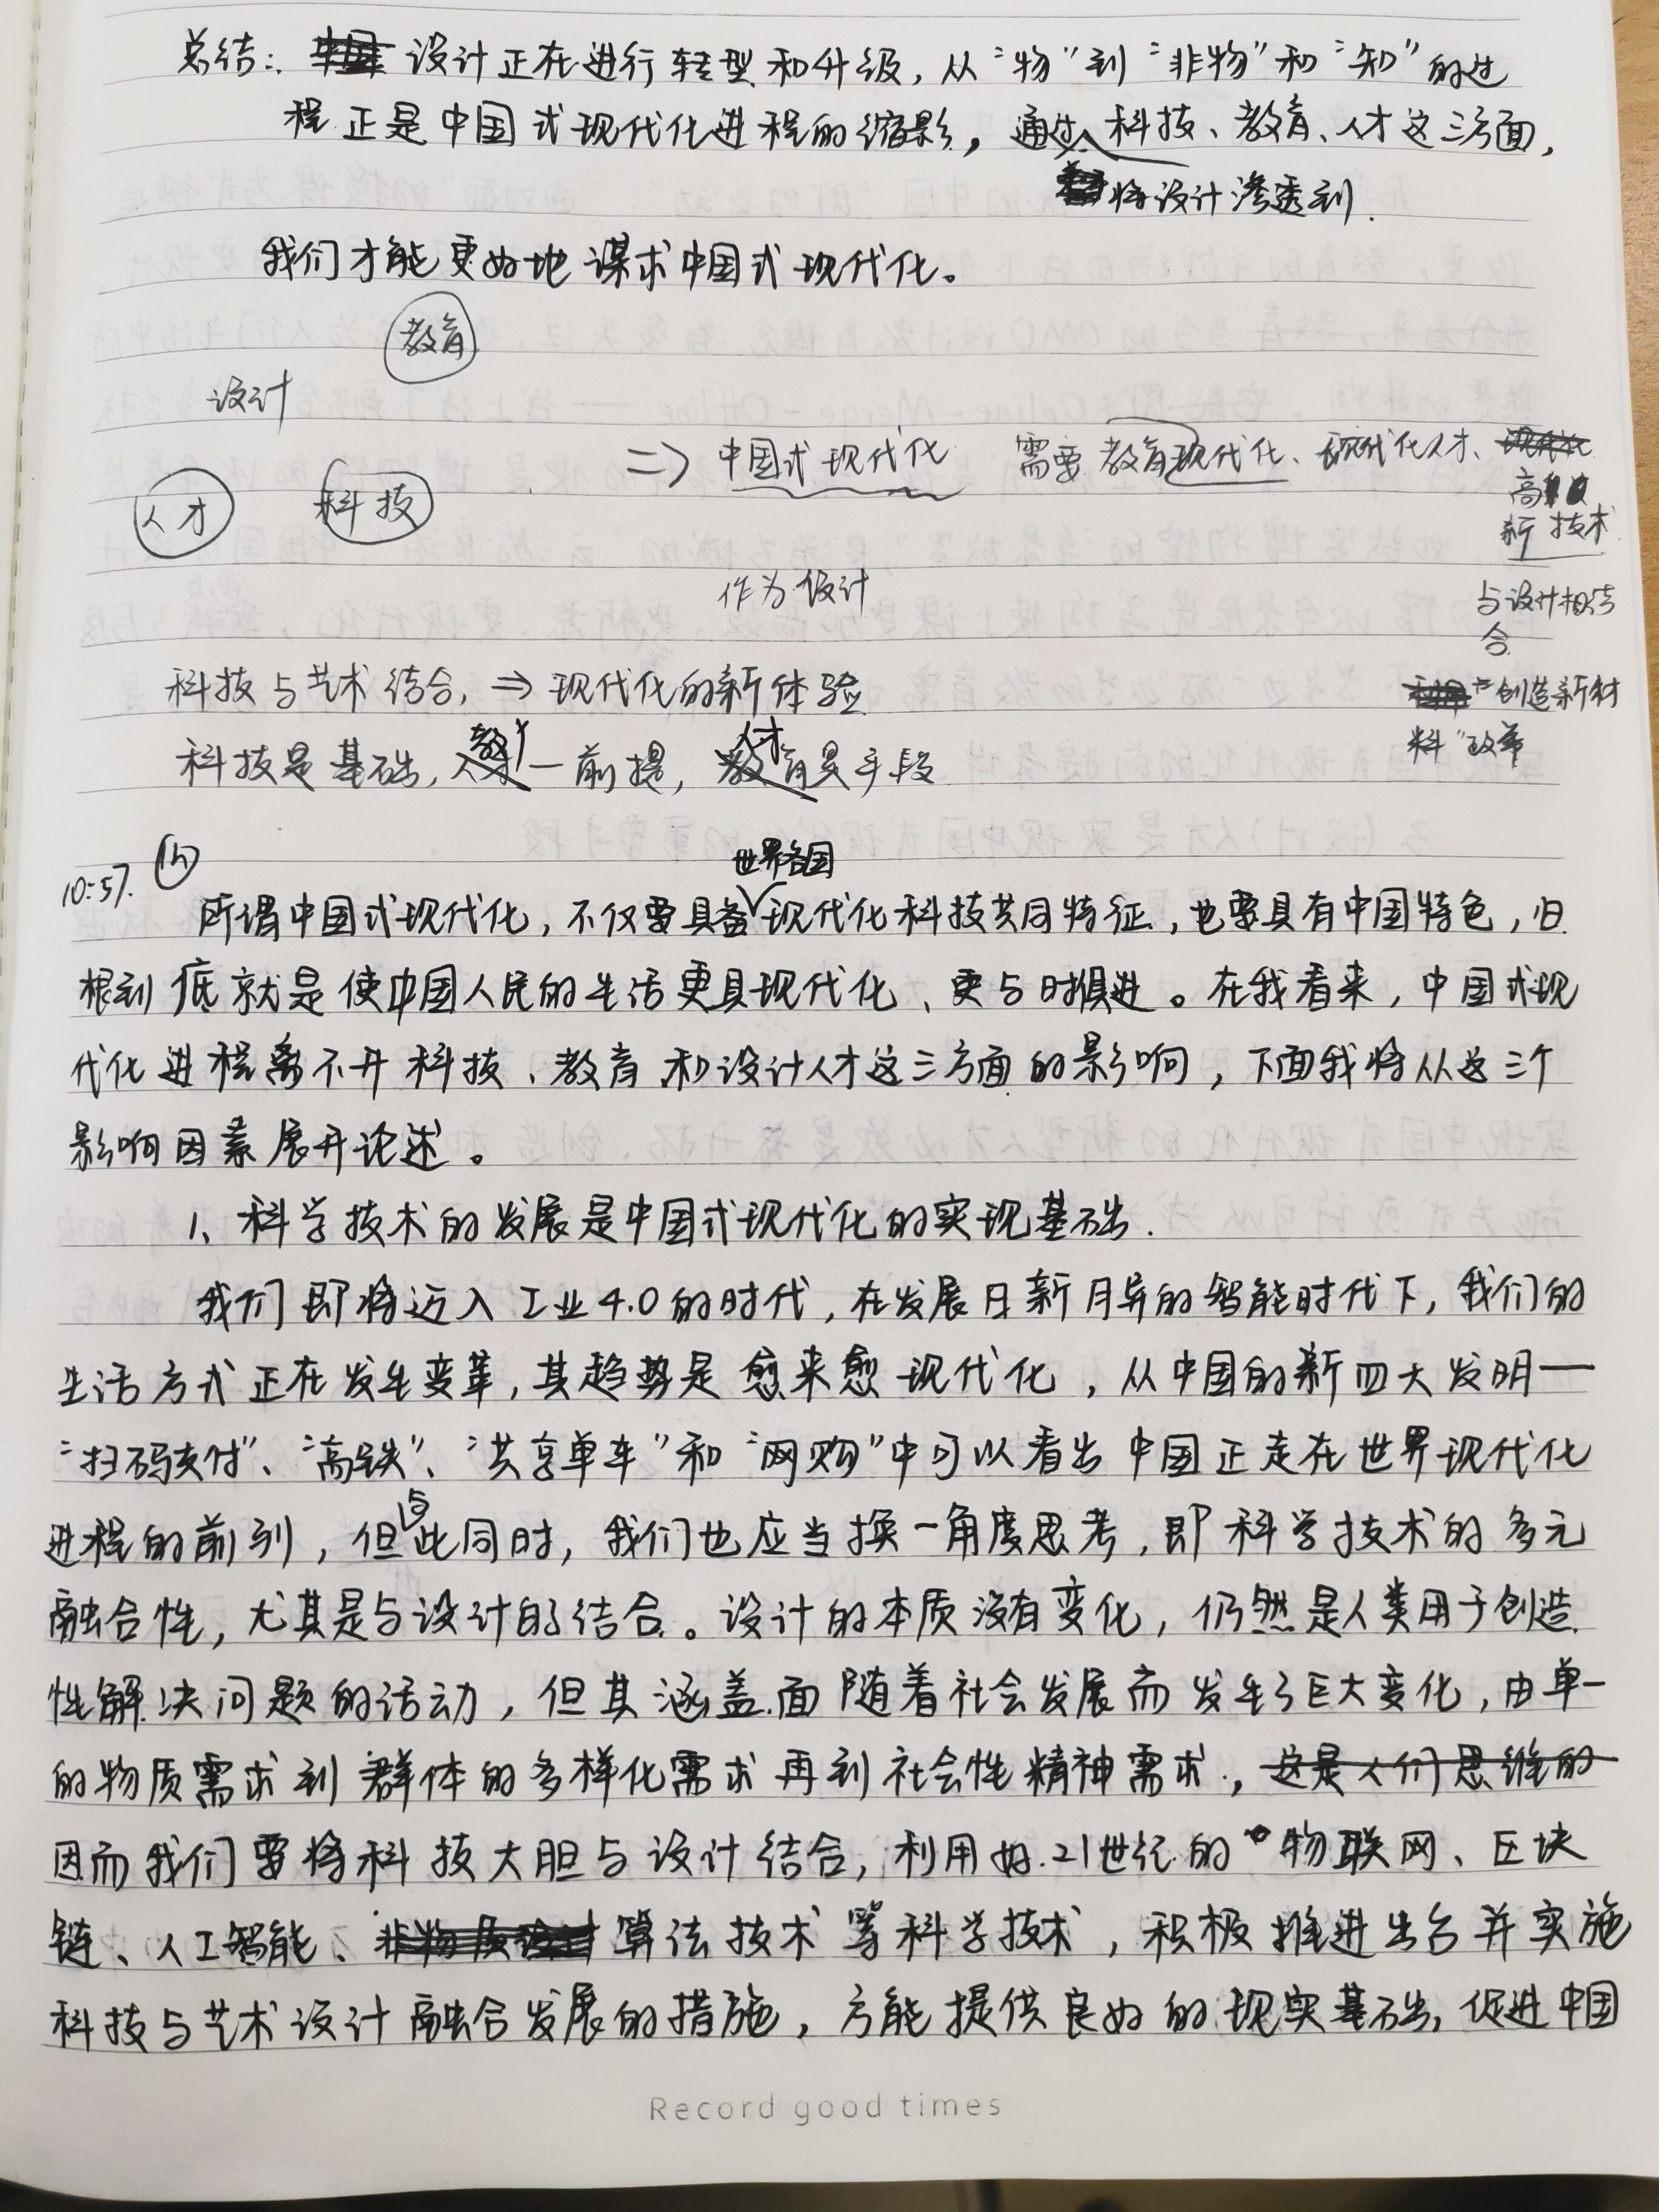 总结：设计正在进行转型和升级，从“物”到“非物”和“知”的过
程正是中国式现代化进程的缩影，通过科技、教育、人才这三方面，
将设计渗透到
我们才能更好地谋求中国式现代化。
教育
设计
=> 中国式现代化 需要教育现代化、现代化人才、
高
新技术
人才 科技
作为设计
与设计相结
合
科技与艺术结合，=> 现代化的新体验
“创造新材
料”改革
教育 人才
科技是基础，一前提，是手段
10:57. 1h
世界各国
所谓中国式现代化，不仅要具备现代化科技共同特征，也要具有中国特色，归
根到底就是使中国人民的生活更具现代化、更与时俱进。在我看来，中国式现
代化进程离不开科技、教育和设计人才这三方面的影响，下面我将从这三个
影响因素展开论述。
1、科学技术的发展是中国式现代化的实现基础.
我们即将迈入工业4.0的时代，在发展日新月异的智能时代下，我们的
生活方式正在发生变革，其趋势是愈来愈现代化，从中国的新四大发明——
“扫码支付”、“高铁”、“共享单车”和“网购”中可以看出中国正走在世界现代化
进程的前列，但与此同时，我们也应当换一角度思考，即科学技术的多元
融合性，尤其是与设计的结合。设计的本质没有变化，仍然是人类用于创造
性解决问题的活动，但其涵盖面随着社会发展而发生了巨大变化，由单一
的物质需求到群体的多样化需求再到社会性精神需求，这是人们思维的
因而我们要将科技大胆与设计结合，利用好21世纪的物联网、区块
链、人工智能、算法技术等科学技术，积极推进出台并实施
科技与艺术设计融合发展的措施，方能提供良好的现实基础，促进中国
Record good times